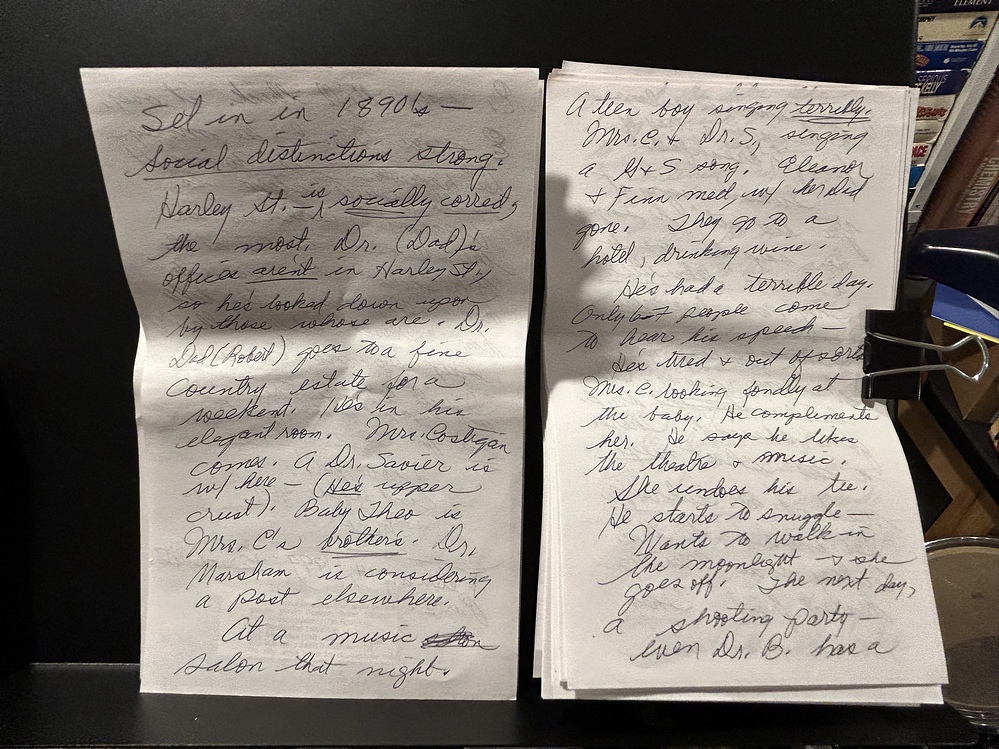 Set in in 1890's —
social distinctions strong.
Harley St. — is socially correct,
the most. Dr. (Dad)'s
offices aren't in Harley St.,
so he's looked down upon
by those whose are. Dr.
Dad (Robert) goes to a fine
country estate for a
weekend. He's in his
elegant room. Mrs. Costigan
comes. A Dr. Savier is
w/ here — (He's upper
crust). Baby Theo is
Mrs. C's brother's. Dr.
Marsham is considering
a post elsewhere.
At a music
salon that night.
A teen boy singing terribly.
Mrs. C. & Dr. S, singing
a G & S song. Eleanor
& Finn med, w/ her Dad
gone. They go to a
hotel, drinking wine.
He's had a terrible day.
Only people come
to hear his speech —
He's tired & out of sorts
Mrs. C. looking fondly at
the baby. He compliments
her. He says he likes
the theatre & music.
She undoes his tie.
He starts to snuggle —
Wants to walk in
the moonlight → & she
goes off. The next day,
a shooting party —
even Dr. B. has a
ELEMENT